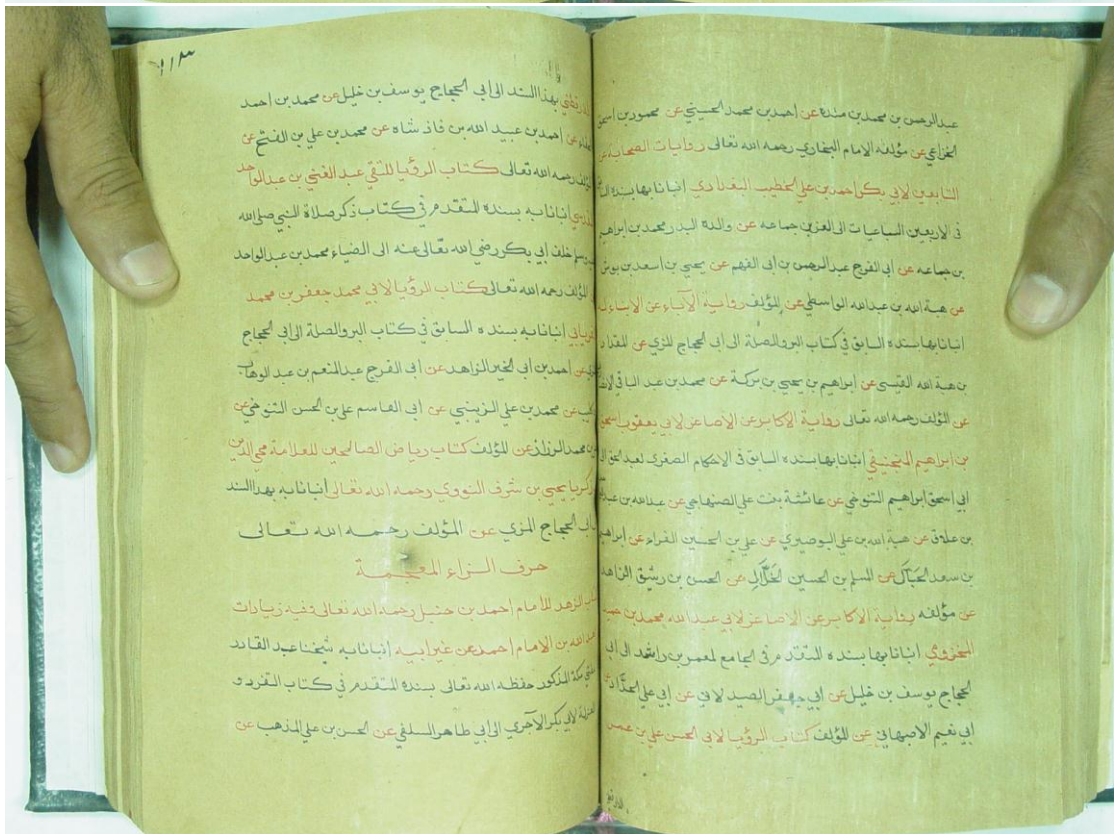 عبد الرحمن بن محمد بن منده عن احمد بن محمد الحسيني عن محمود بن اسحق
الخزاعي عن مؤلفه الامام البخاري رحمه الله تعالى روايات الصحابة عن
التابعين لابي بكر احمد بن علي الخطيب البغدادي انبانا بها بسنده
في الاربعين الساعيات الى العز بن جماعه عن والده البدر محمد بن ابراهيم
بن جماعه عن ابي الفرج عبد الرحمن بن ابي الفهم عن يحيى بن اسعد بن بوش
عن هبة الله بن عبدالله الواسطي عن المؤلف رواية الآباء عن الابناء
انبانا بها بسنده السابق في كتاب البر والصلة الى ابي الحجاج المزي عن المقداد
بن هبة الله القيسي عن ابراهيم بن يحيى بن بركة عن محمد بن عبد الباقي
عن المؤلف رحمه الله تعالى رواية الاكابر عن الاصاغر لابي يعقوب اسحق
بن ابراهيم المنجنيقي انبانا بها بسنده السابق في الاحكام الصغرى لعبد الحق
ابي اسحق ابراهيم التنوخي عن عائشة بنت علي الصنهاجي عن عبدالله بن
بن علاق عن هبة الله بن علي البوصيري عن علي بن الحسين الفراء عن ابراهيم
بن سعد الحبّال عن المسلم بن الحسين الخلّال عن الحسن بن رشيق الزاهد
عن مؤلفه رواية الاكابر عن الاصاغر لابي عبد الله محمد بن
المخزومي انبانا بها بسنده المتقدم في الجامع لمعمر بن راشد الى ابي
الحجاج يوسف بن خليل عن ابي جعفر الصيدلاني عن ابي علي الحدّاد
ابي نعيم الاصبهاني عن المؤلف كتاب الرؤيا لابي الحسن علي بن عمر
١١٣
بهذا السند الى ابي الحجاج يوسف بن خليل عن محمد بن احمد
عن احمد بن عبيد الله بن فاذ شاه عن محمد بن علي بن الفتح عن
المؤلف رحمه الله تعالى كتاب الرؤيا للتقي عبد الغني بن عبد الواحد
انبانا به بسنده المتقدم في كتاب ذكر صلاة النبي صلى الله
وسلم خلف ابي بكر رضي الله تعالى عنه الى الضياء محمد بن عبد الواحد
المؤلف رحمه الله تعالى كتاب الرؤيا لابي محمد جعفر بن محمد
انبانا به بسنده السابق في كتاب البر والصلة الى ابي الحجاج
عن احمد بن ابي الخير الزاهد عن ابي الفرج عبد المنعم بن عبد الوهاب
عن محمد بن علي الزينبي عن ابي القاسم علي بن الحسن التنوخي عن
بن محمد الرزاز عن المؤلف كتاب رياض الصالحين للعلامة محي الدين
زكريا يحيى بن شرف النووي رحمه الله تعالى انبانا به بهذا السند
الى ابي الحجاج المزي عن المؤلف رحمه الله تعالى
حرف الزاء المعجمة
الزهد للأمام احمد بن حنبل رحمه الله تعالى وفيه زيادات
عبد الله بن الامام احمد عن غير ابيه انبانا به شيخنا عبد القادر
مكة المذكور حفظه الله تعالى بسنده المتقدم في كتاب التفرد و
لابي بكر الآجري الى ابي طاهر السلفي عن الحسن بن علي المذهب عن